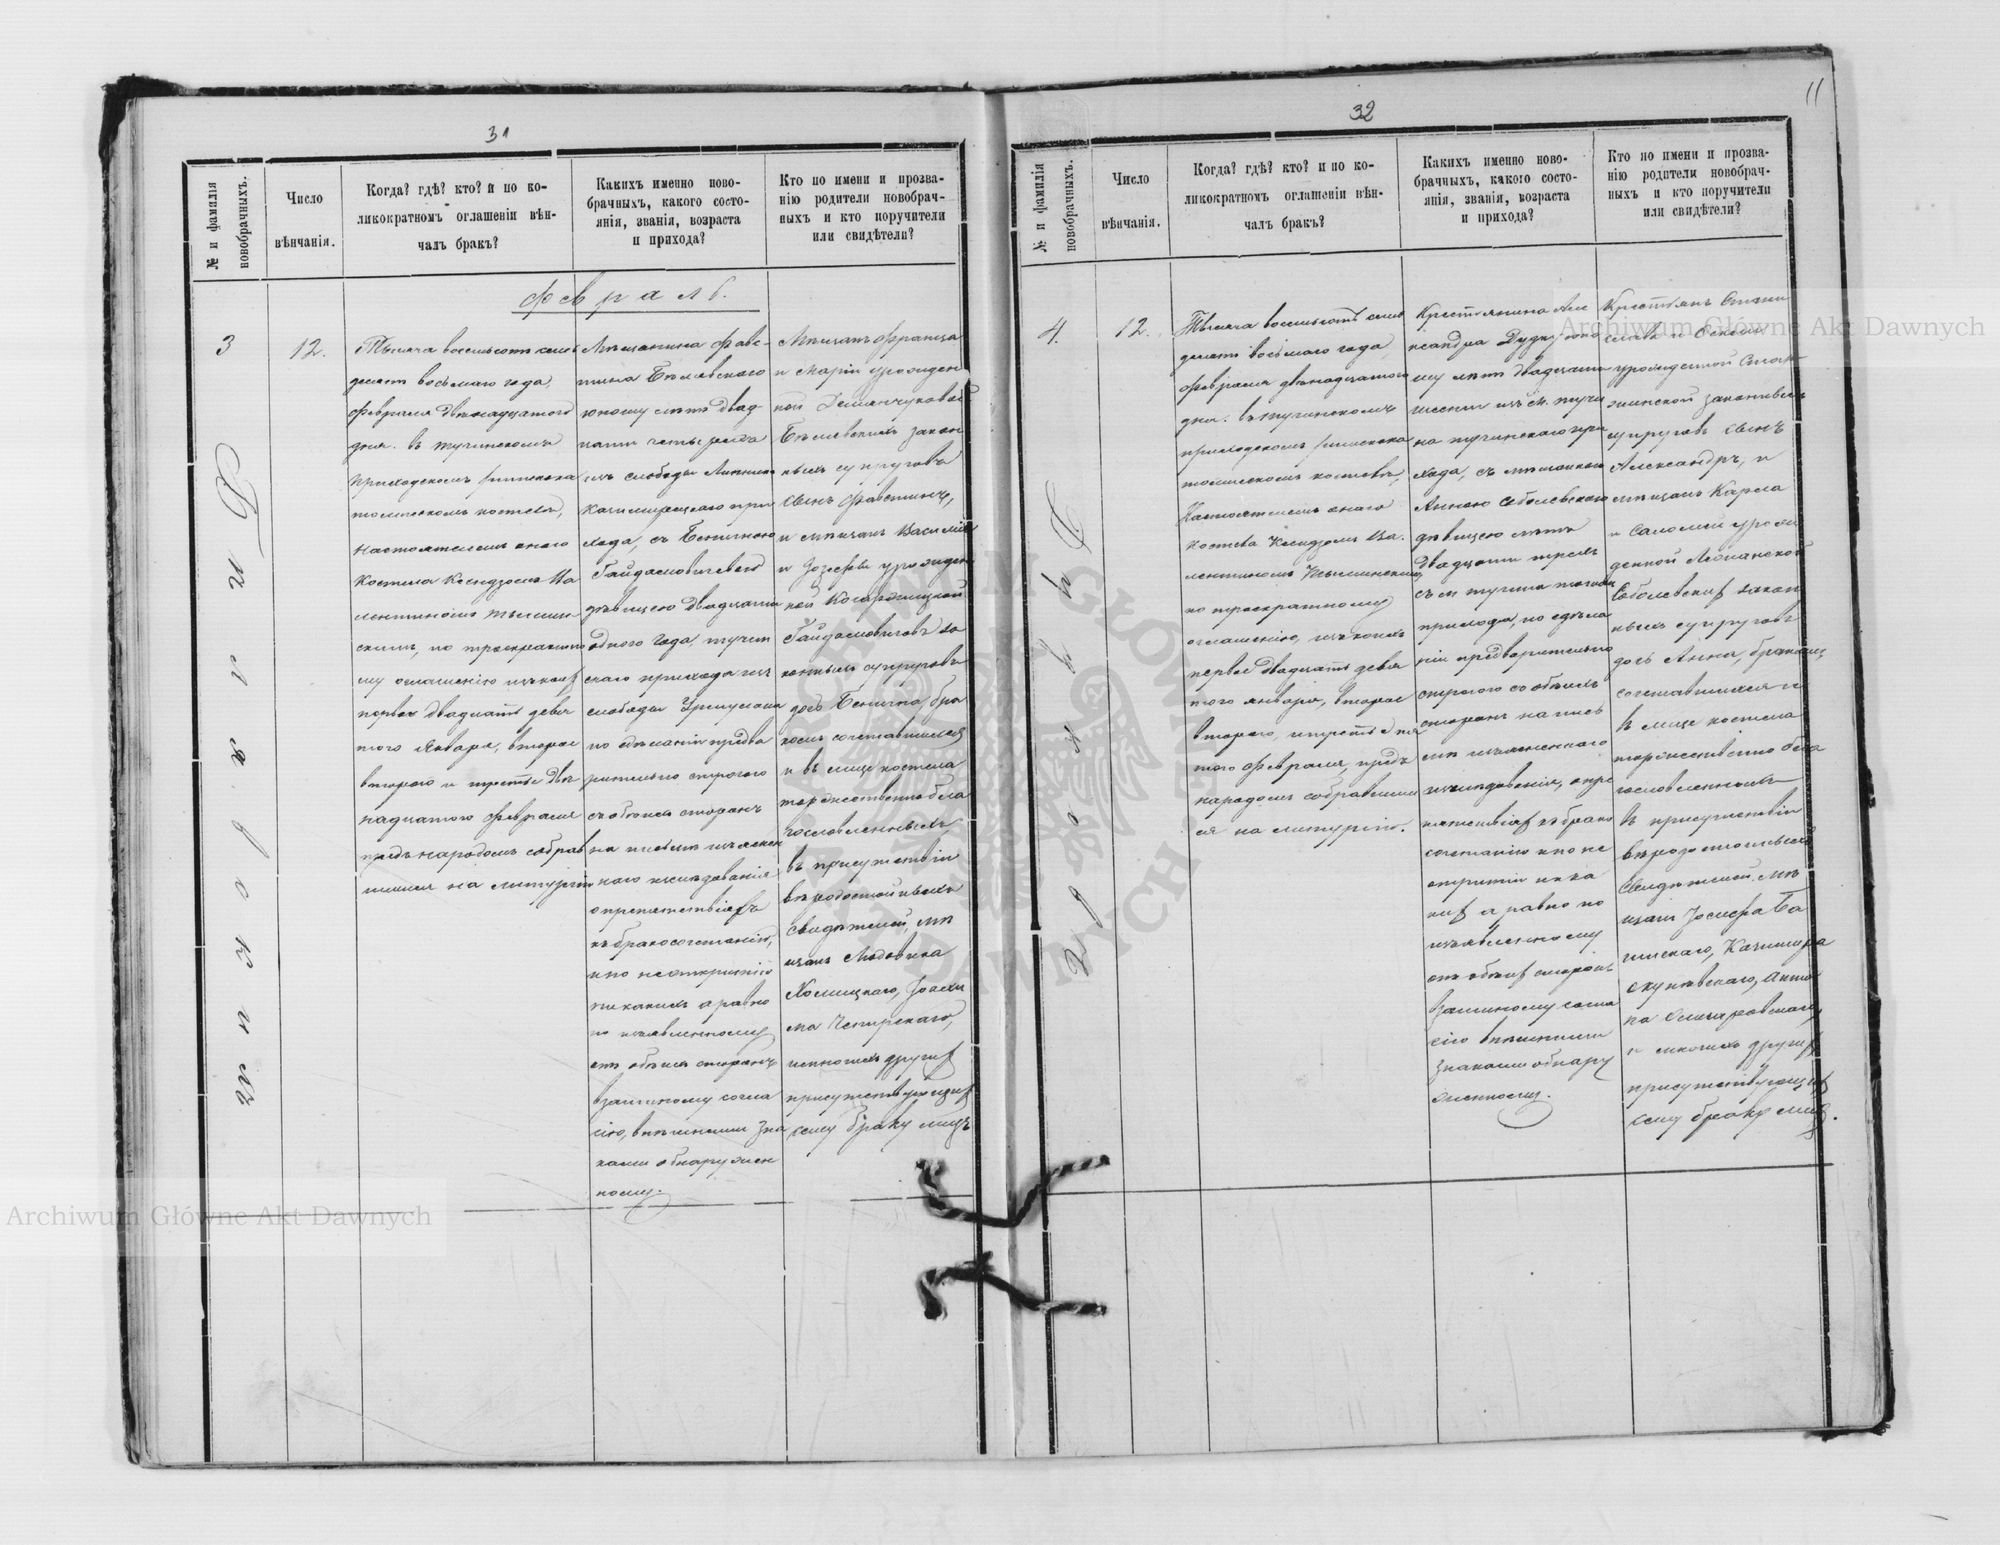 31
№ и фамилія новобрачныхъ.
Число вѣнчанія.
Когда? гдѣ? кто? и по ко-
ликократномъ оглашеніи вѣн-
чалъ бракъ?
Какихъ именно ново-
брачныхъ, какого состо-
янія, званія, возраста
и прихода?
Кто по имени и прозва-
нію родители новобрач-
ныхъ и кто поручители
или свидѣтели?
Февраль.
3
12.
Тысяча восемьсотъ семь
десятъ восьмаго года,
февраля двѣнадцатаго
дня. въ тучинскомъ
приходскомъ римскока
толическомъ костелѣ,
настоятелемъ онаго
костела Ксендзомъ Ва
лентиномъ
скимъ, по троекратно
му оглашенію изъ коихъ
первое двадцать девя
того Января, второе
втораго и третье двѣ
надцатаго февраля
предъ народомъ собрав
шимся на литургію
Мѣщанина Фавс-
тина Бѣлявскаго
юношу лѣтъ двад-
цати четырехъ
изъ слободы
при
хода, съ Бениною
Гайдамовичевою
дѣвицею двадцати
одного года, тучин
скаго прихода изъ
слободы
по сдѣланіи предва
рительно строгаго
съ обоихъ сторонъ
на письмѣ изъяснен
наго изслѣдованія
о препятствіяхъ
къ бракосочетанію,
и по неоткрытію
никакихъ а равно
по изъявленному
отъ обоихъ сторонъ
взаимному согла
сію, внѣшними зна
ками обнаружен
ному.
Мѣщанъ Франца
и Маріи урожден
ной Демянчуковой
Бѣлявскихъ закон
ныхъ супруговъ
сынъ Фавстинъ,
и мѣщанъ Василія
и Іозефы урожден
ной
Гайдамовичовъ за
конныхъ супруговъ
дочь Бенина, бра
комъ сочетавшихся
и въ лицѣ костела
торжественно бла
гословленныхъ,
въ присутствіи
вѣродостойныхъ
свидѣтелей, мѣ
щанъ Людовика
Хомицкаго, Іоахи
ма
и многихъ другихъ
присутствующихъ
сему браку лицъ
32
11
№ и фамилія новобрачныхъ.
Число вѣнчанія.
Когда? гдѣ? кто? и по ко-
ликократномъ оглашеніи вѣн-
чалъ бракъ?
Какихъ именно ново-
брачныхъ, какого состо-
янія, званія, возраста
и прихода?
Кто по имени и прозва-
нію родители новобрач-
ныхъ и кто поручители
или свидѣтели?
4.
12.
Тысяча восемьсотъ семь
десятъ восьмаго года,
февраля двѣнадцатаго
дня. въ тучинскомъ
приходскомъ римскока
толическомъ костелѣ,
Настоятелемъ онаго
костела Ксендзомъ Ва-
лентиномъ
по троекратному
оглашенію, изъ коихъ
первое двадцать девя
того января, второе
втораго, и третье
февраля, предъ
народомъ собравшим
ся на литургію.
Крестьянина Але
ксандра Дудку юно
шу лѣтъ двадцати
изъ м. тучи
на тучинскаго при
хода, съ мѣщанкою
Анною Соболевскою
дѣвицею лѣтъ
двадцати трехъ
съ м тучина тогожъ
прихода, по сдѣла
ніи предварительно
строгаго съ обоихъ
сторонъ на пись
мѣ изъясненнаго
изслѣдованія, о пре
пятствіяхъ къ брако
сочетанію и по не
открытіи ника
кихъ а равно по
изъявленному
отъ обоихъ сторонъ
взаимному согла
сію внѣшними
знаками обнару
женному.
Крестьянъ
урожденной
законныхъ
супруговъ сынъ
Александръ, и
мѣщанъ Карла
и Саломеи урож
денной
Соболевскихъ закон
ныхъ супруговъ
дочь Анна, бракомъ
сочетавшихся и
въ лицѣ костела
торжественно бла
гословленныхъ
въ присутствіи
вѣродостойныхъ
свидѣтелей. мѣ
щанъ Іосифа
Казимира
и многихъ другихъ
присутствующихъ
сему браку лицъ.
Archiwum Główne Akt Dawnych
Archiwum Główne Akt Dawnych